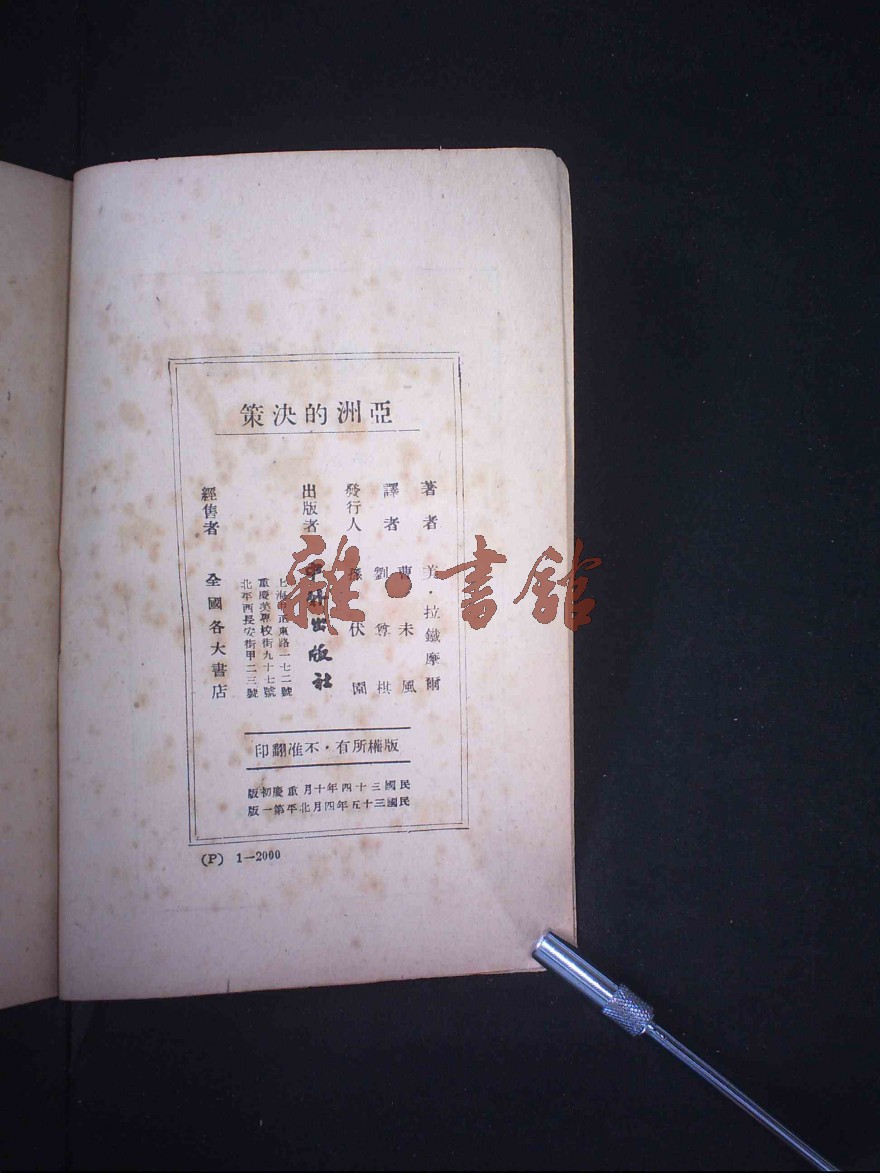 亞洲的決策
著者 美·拉鐵摩爾
譯者 曹未風 劉尊棋
發行人 孫伏園
出版者 中外出版社
上海中正東路一七二號
重慶英專校街九十七號
北平西長安街甲二三號
經售者 全國各大書店
版權所有·不准翻印
民國三十四年十月重慶初版
民國三十五年四月北平第一版
(P) 1—2000
雜·書館